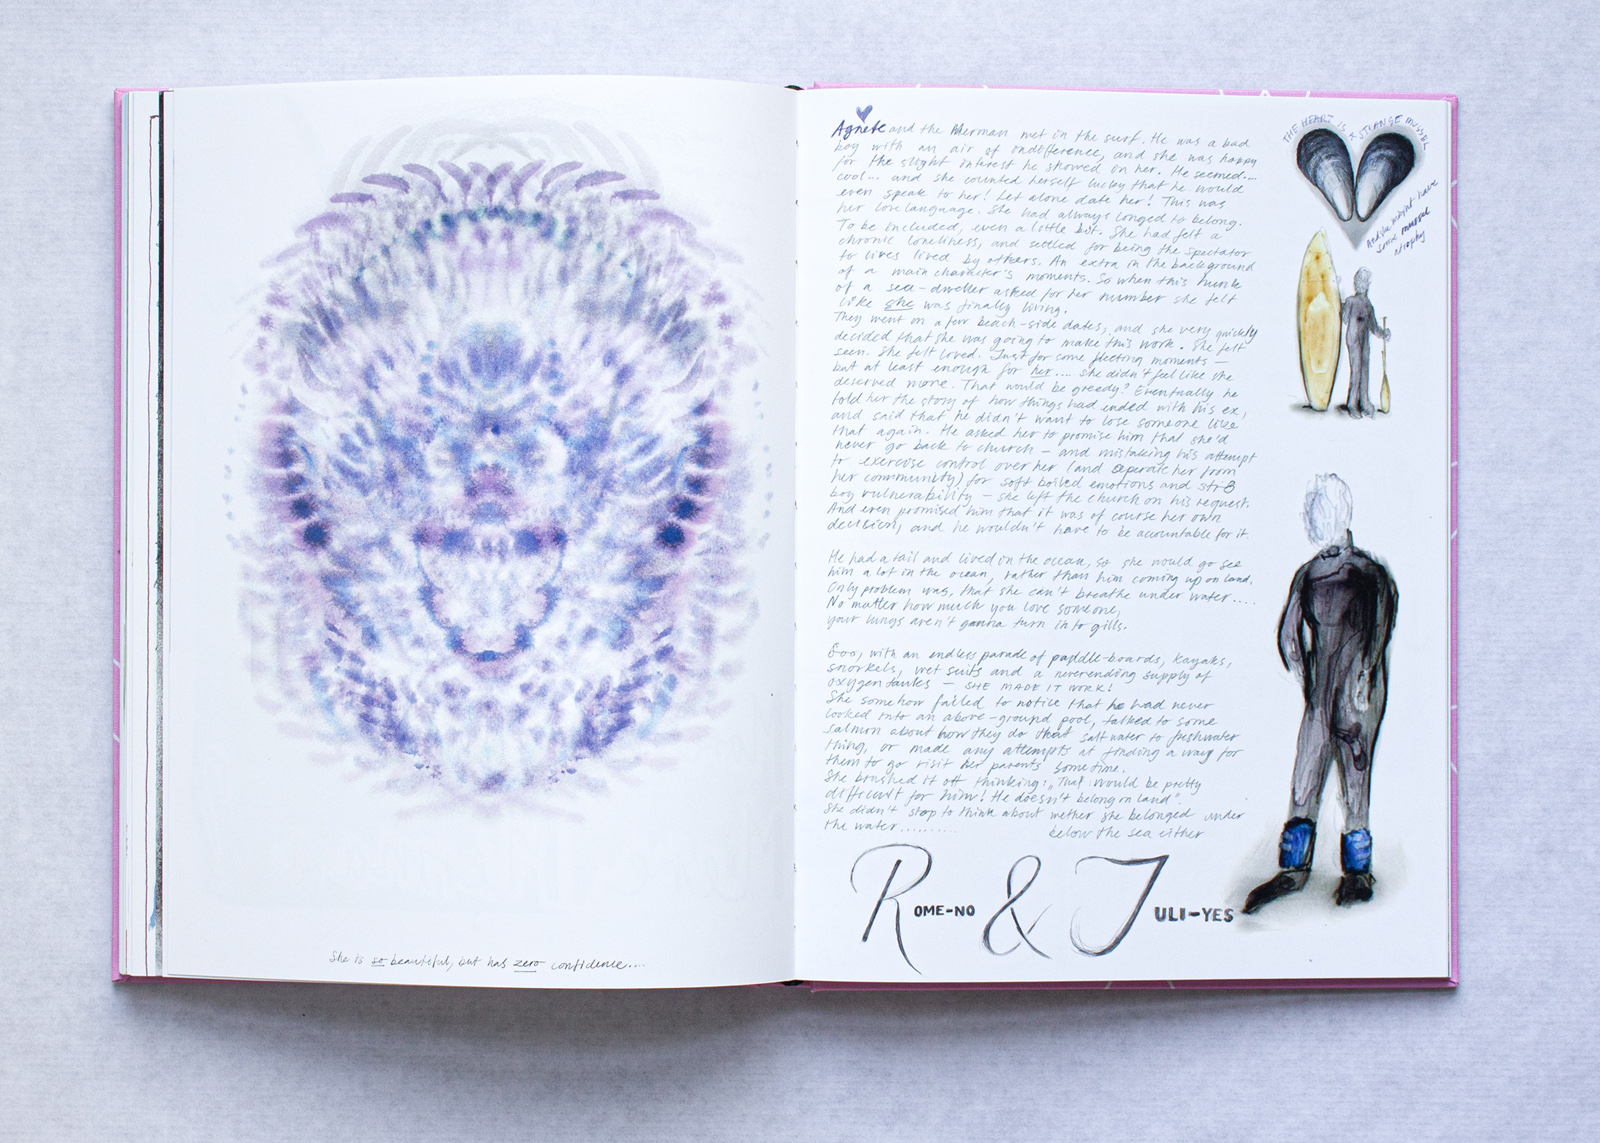 She is so beautiful, but has zero confidence....
Agnete and the Merman met in the surf. He was a bad
boy with an air of indifference, and she was happy
for the slight interest he showed in her. He seemed...
cool... and she counted herself lucky that he would
even speak to her! Let alone date her! This was
her love language. She had always longed to belong.
To be included, even a little bit. She had felt a
chronic loneliness, and settled for being the spectator
to lives lived by others. An extra in the background
of a main character's moments. So when this hunk
of a sea-dweller asked for her number she felt
like she was finally living.
They went on a few beach-side dates, and she very quickly
decided that she was going to make this work. She felt
seen. She felt loved. Just for some fleeting moments —
but at least enough for her.... she didn't feel like she
deserved more. That would be greedy? Eventually he
told her the story of how things had ended with his ex,
and said that he didn't want to lose someone like
that again. He asked her to promise him that she'd
never go back to church — and mistaking his attempt
to exercise control over her (and seperate her from
her community) for soft boiled emotions and str8
boy vulnerability — she left the church on his request.
And even promised him that it was of course her own
decision, and he wouldn't have to be accountable for it.
He had a tail and lived in the ocean, so she would go see
him a lot in the ocean, rather than him coming up on land.
Only problem was, that she can't breathe under water....
No matter how much you love someone,
your lungs aren't gonna turn into gills.
Soo, with an endless parade of paddle-boards, kayaks,
snorkels, wet suits and a neverending supply of
oxygen tanks — SHE MADE IT WORK!
She somehow failed to notice that he had never
looked into an above-ground pool, talked to some
salmon about how they do that salt water to freshwater
thing, or made any attempts at finding a way for
them to go visit her parents sometime.
She brushed it off thinking: "That would be pretty
difficult for him! He doesn't belong on land".
She didn't stop to think about wether she belonged under
the water..........
below the sea either
THE HEART IS A STRANGE MUSSEL
And she might have
some mussel
atrophy
ROME-NO & JULI-YES